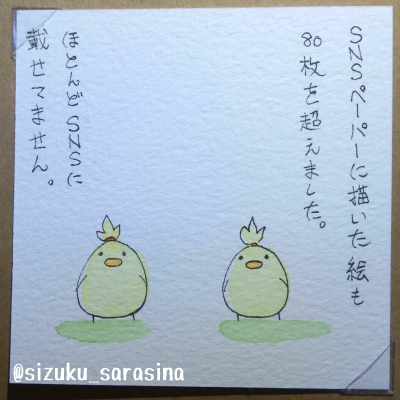 SNSペーパーに描いた絵も
80枚を超えました。
ほとんどSNSに
載せてません。
@sizuku_sarasina